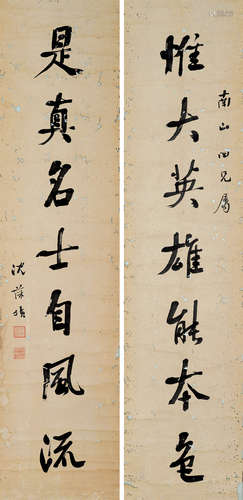 惟大英雄能本色
南山四兄属
是真名士自風流
沈葆楨